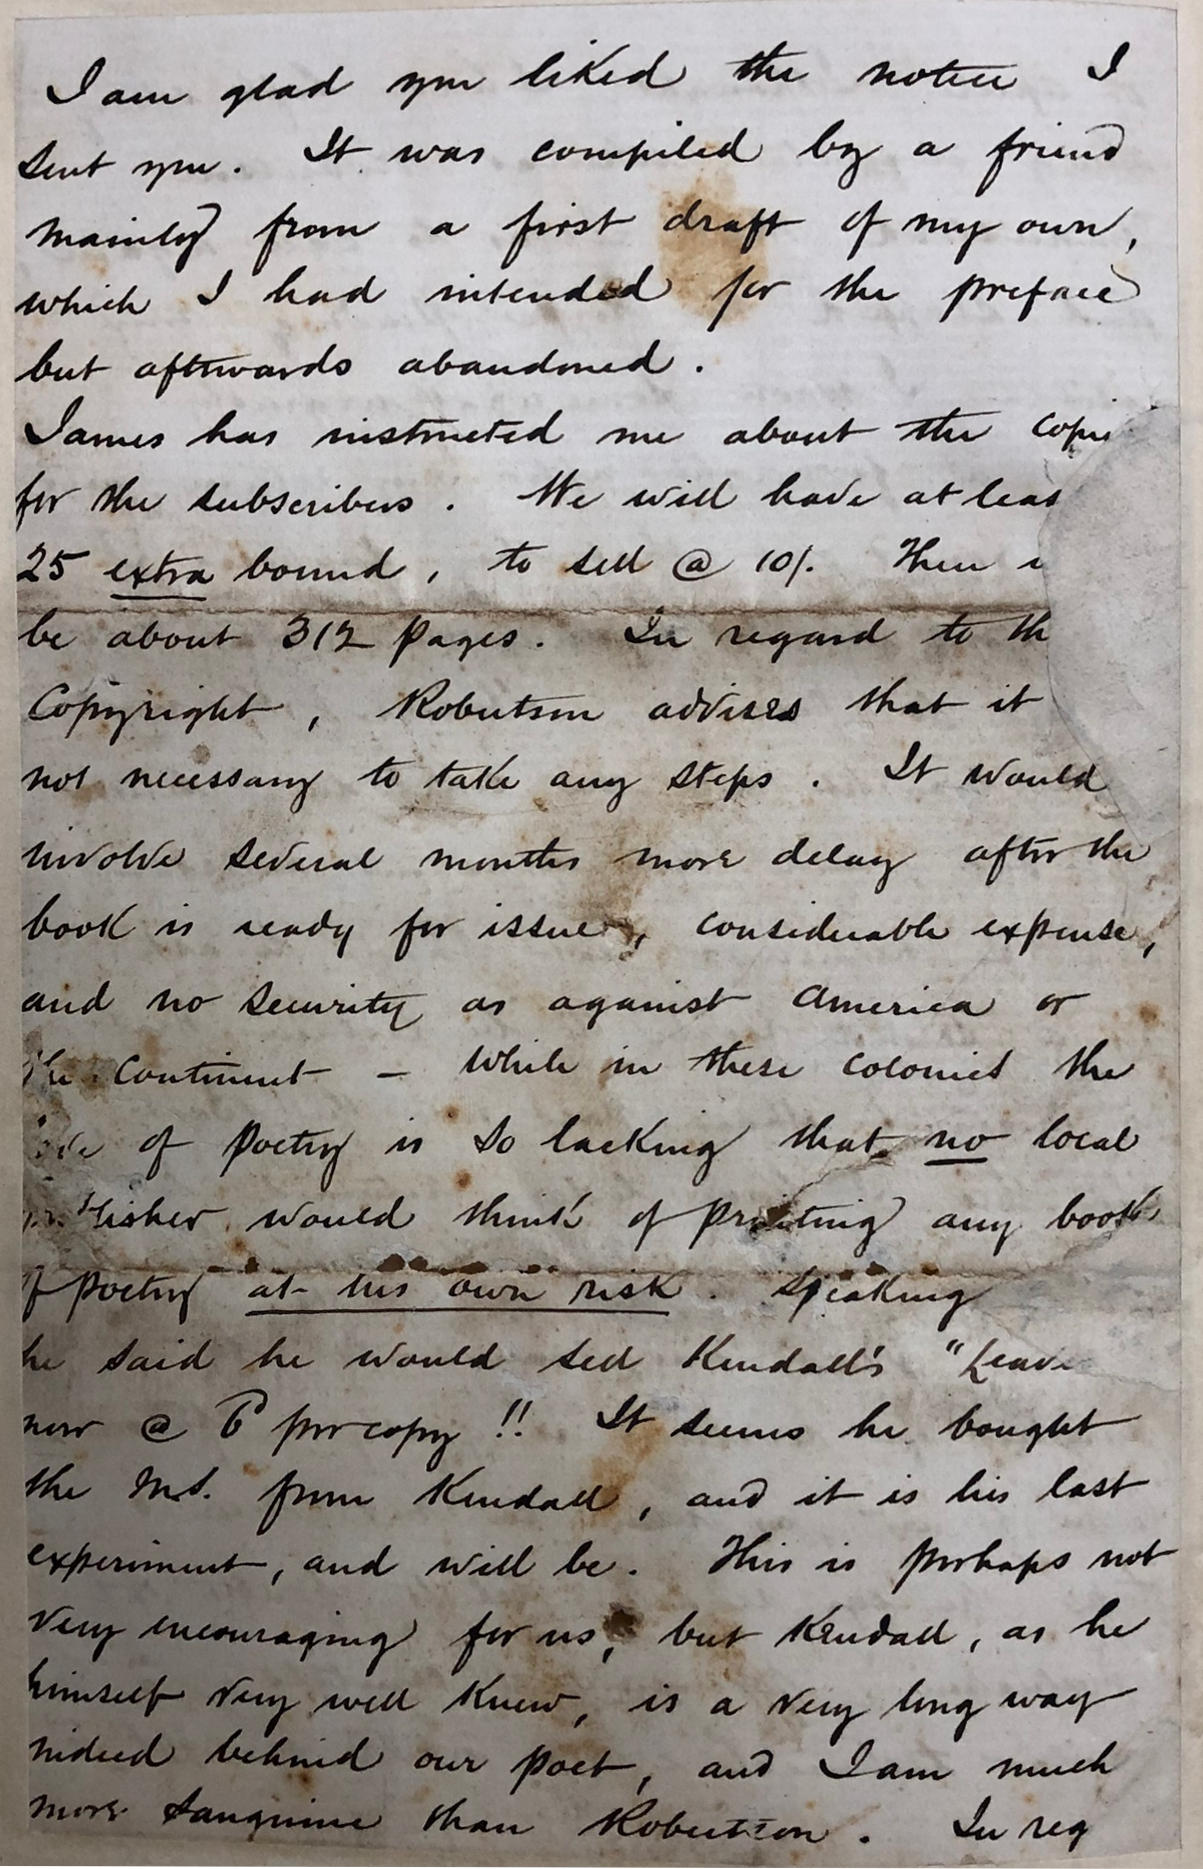 I am glad you liked the notice I
sent you. It was compiled by a friend
mainly from a first draft of my own,
which I had intended for the preface
but afterwards abandoned.
James has instructed me about the copi
for the subscribers. We will have at leas
25 extra bound, to sell @ 10/. There
be about 312 pages. In regard to th
Copyright, Robertson advises that it
not necessary to take any steps. It would
involve several months more delay after the
book is ready for issue, considerable expense,
and no security as against America or
the Continent – while in these colonies the
of poetry is so lacking that no local
would think of printing any book
of poetry at his own risk. Speaking
he said he would sell Kendall's "Leave
now @ per copy !! It seems he bought
the M.S. from Kendall, and it is his last
experiment, and will be. This is perhaps not
very encouraging for us, but Kendall, as he
himself very well knew, is a very long way
indeed behind our poet, and I am much
more sanguine than Robertson. In reg